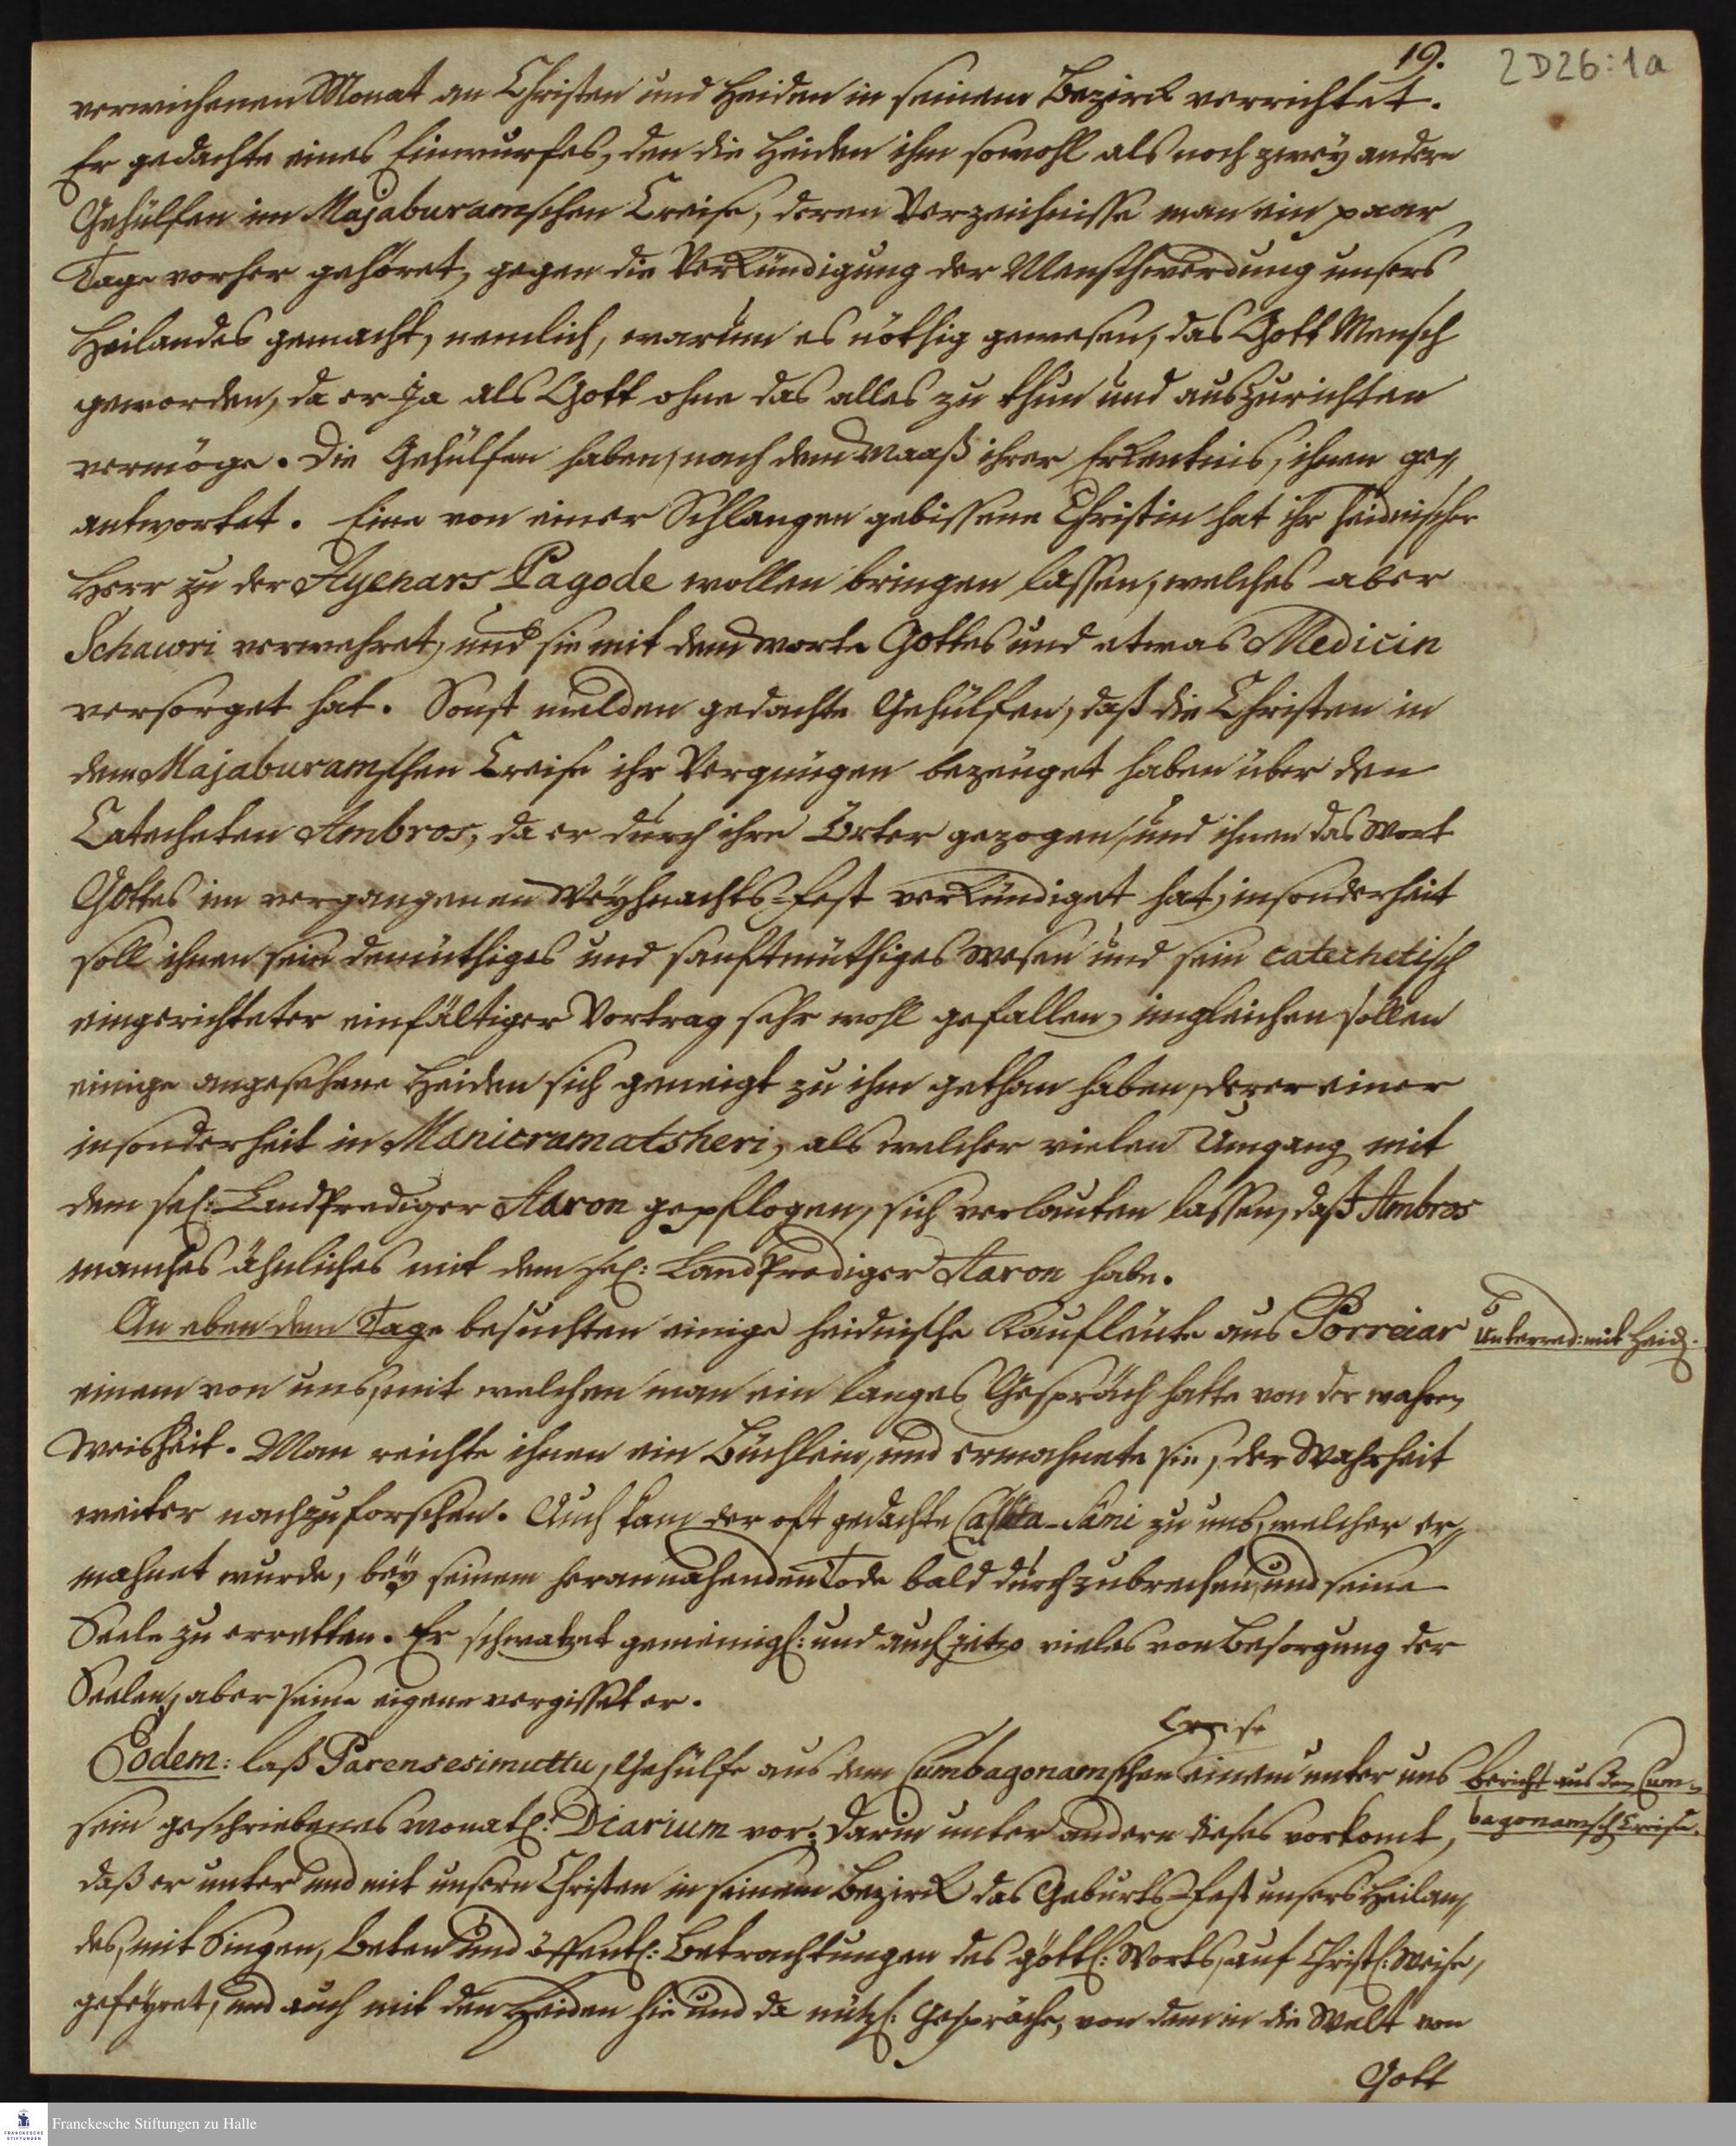 19.
2D26:1a
verwichenen Monat an Christen und Heiden in seinem Bezirck verrichtet.
Er gedachte eines Einwurfes, den die Heiden ihm sowohl als noch zwey andern
Gehülfen im Majaburamschen Creise, deren Verzeichnisse man ein paar
Tage vorher gehöret, gegen die Verkündigung der Menschwerdung unsers
Heilandes gemacht, nemlich, warum es nöthig gewesen, das Gott Mensch
geworden, da er ja als Gott ohne das alles zu thun und auszurichten
vermöge. Die Gehülfen haben, nach dem Maaß ihrer Erkentnis, ihnen ge=
antwortet. Eine von einer Schlangen gebissene Christin hat ihr heidnischer
Herr zu der Ayenars Pagode wollen bringen lassen, welches aber
Schawri verwehret, und sie mit dem Worte Gottes und etwas Medicin
versorget hat. Sonst melden gedachte Gehülfen, daß die Christen in
dem Majaburamschen Creise ihr Vergnügen bezeuget haben über den
Catecheten Ambros, da er durch ihre Örter gezogen, und ihnen das Wort
Gottes im vergangenen Weyhnachts-Fest verkündiget hat, insonderheit
soll ihnen sein demüthiges und sanftmüthiges Wesen und sein catechetisch
eingerichteter einfältiger Vortrag sehr wohl gefallen, imgleichen sollen
einige angesehene Heiden sich geneigt zu ihm gethan haben, derer einer
insonderheit in Manicramatsheri, als welcher vielen Umgang mit
dem sel: Landprediger Aaron gepflogen, sich verlauten lassen, daß Ambros
manches ähnliches mit dem sel: Landprediger Aaron habe.
An eben dem Tage besuchten einige heidnische Kaufleute aus Porreiar
Unterred: mit Heid.
einem von uns, mit welchen man ein langes Gespräch hatte von der wahren
Weisheit. Man reichte ihnen ein Büchlein, und ermahnete sie, der Wahrheit
weiter nachzuforschen. Auch kam der oft gedachte -Sāmi zu uns, welcher er=
mahnet wurde, bey seinem herannahenden Tode bald durchzubrechen, und seine
Seele zu erretten. Er schwatzet gemeinigl: und auch jetzo vieles von Besorgung der
Seelen, aber seine eigene vergisset er.
Creise
Eodem: laß Parensesimuttu, Gehülfe aus dem Cumbagonamschen einem unter uns
Bericht aus dem Cum=
bagonamsch Creise.
sein geschriebenes monatl: Diarium vor; darin unter andern dieses vorkomt,
daß er unter und mit unsern Christen in seinem Bezirck das Geburts-Fest unsers Heilan=
des, mit Singen, Beten und öffentl: Betrachtungen des göttl: Worts, auf Christl: Weise,
gefeyret, und auch mit den Heiden hie und da nützl: Gespräche, von dem in die Welt von
Gott
FRANCKESCHE STIFTUNGEN
Franckesche Stiftungen zu Halle